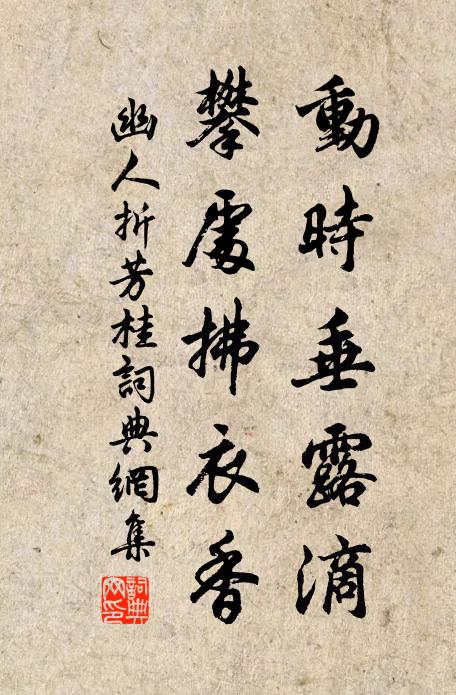 動時垂露滴
攀處拂衣香
幽人折芳桂詞典網集
詞典
文印